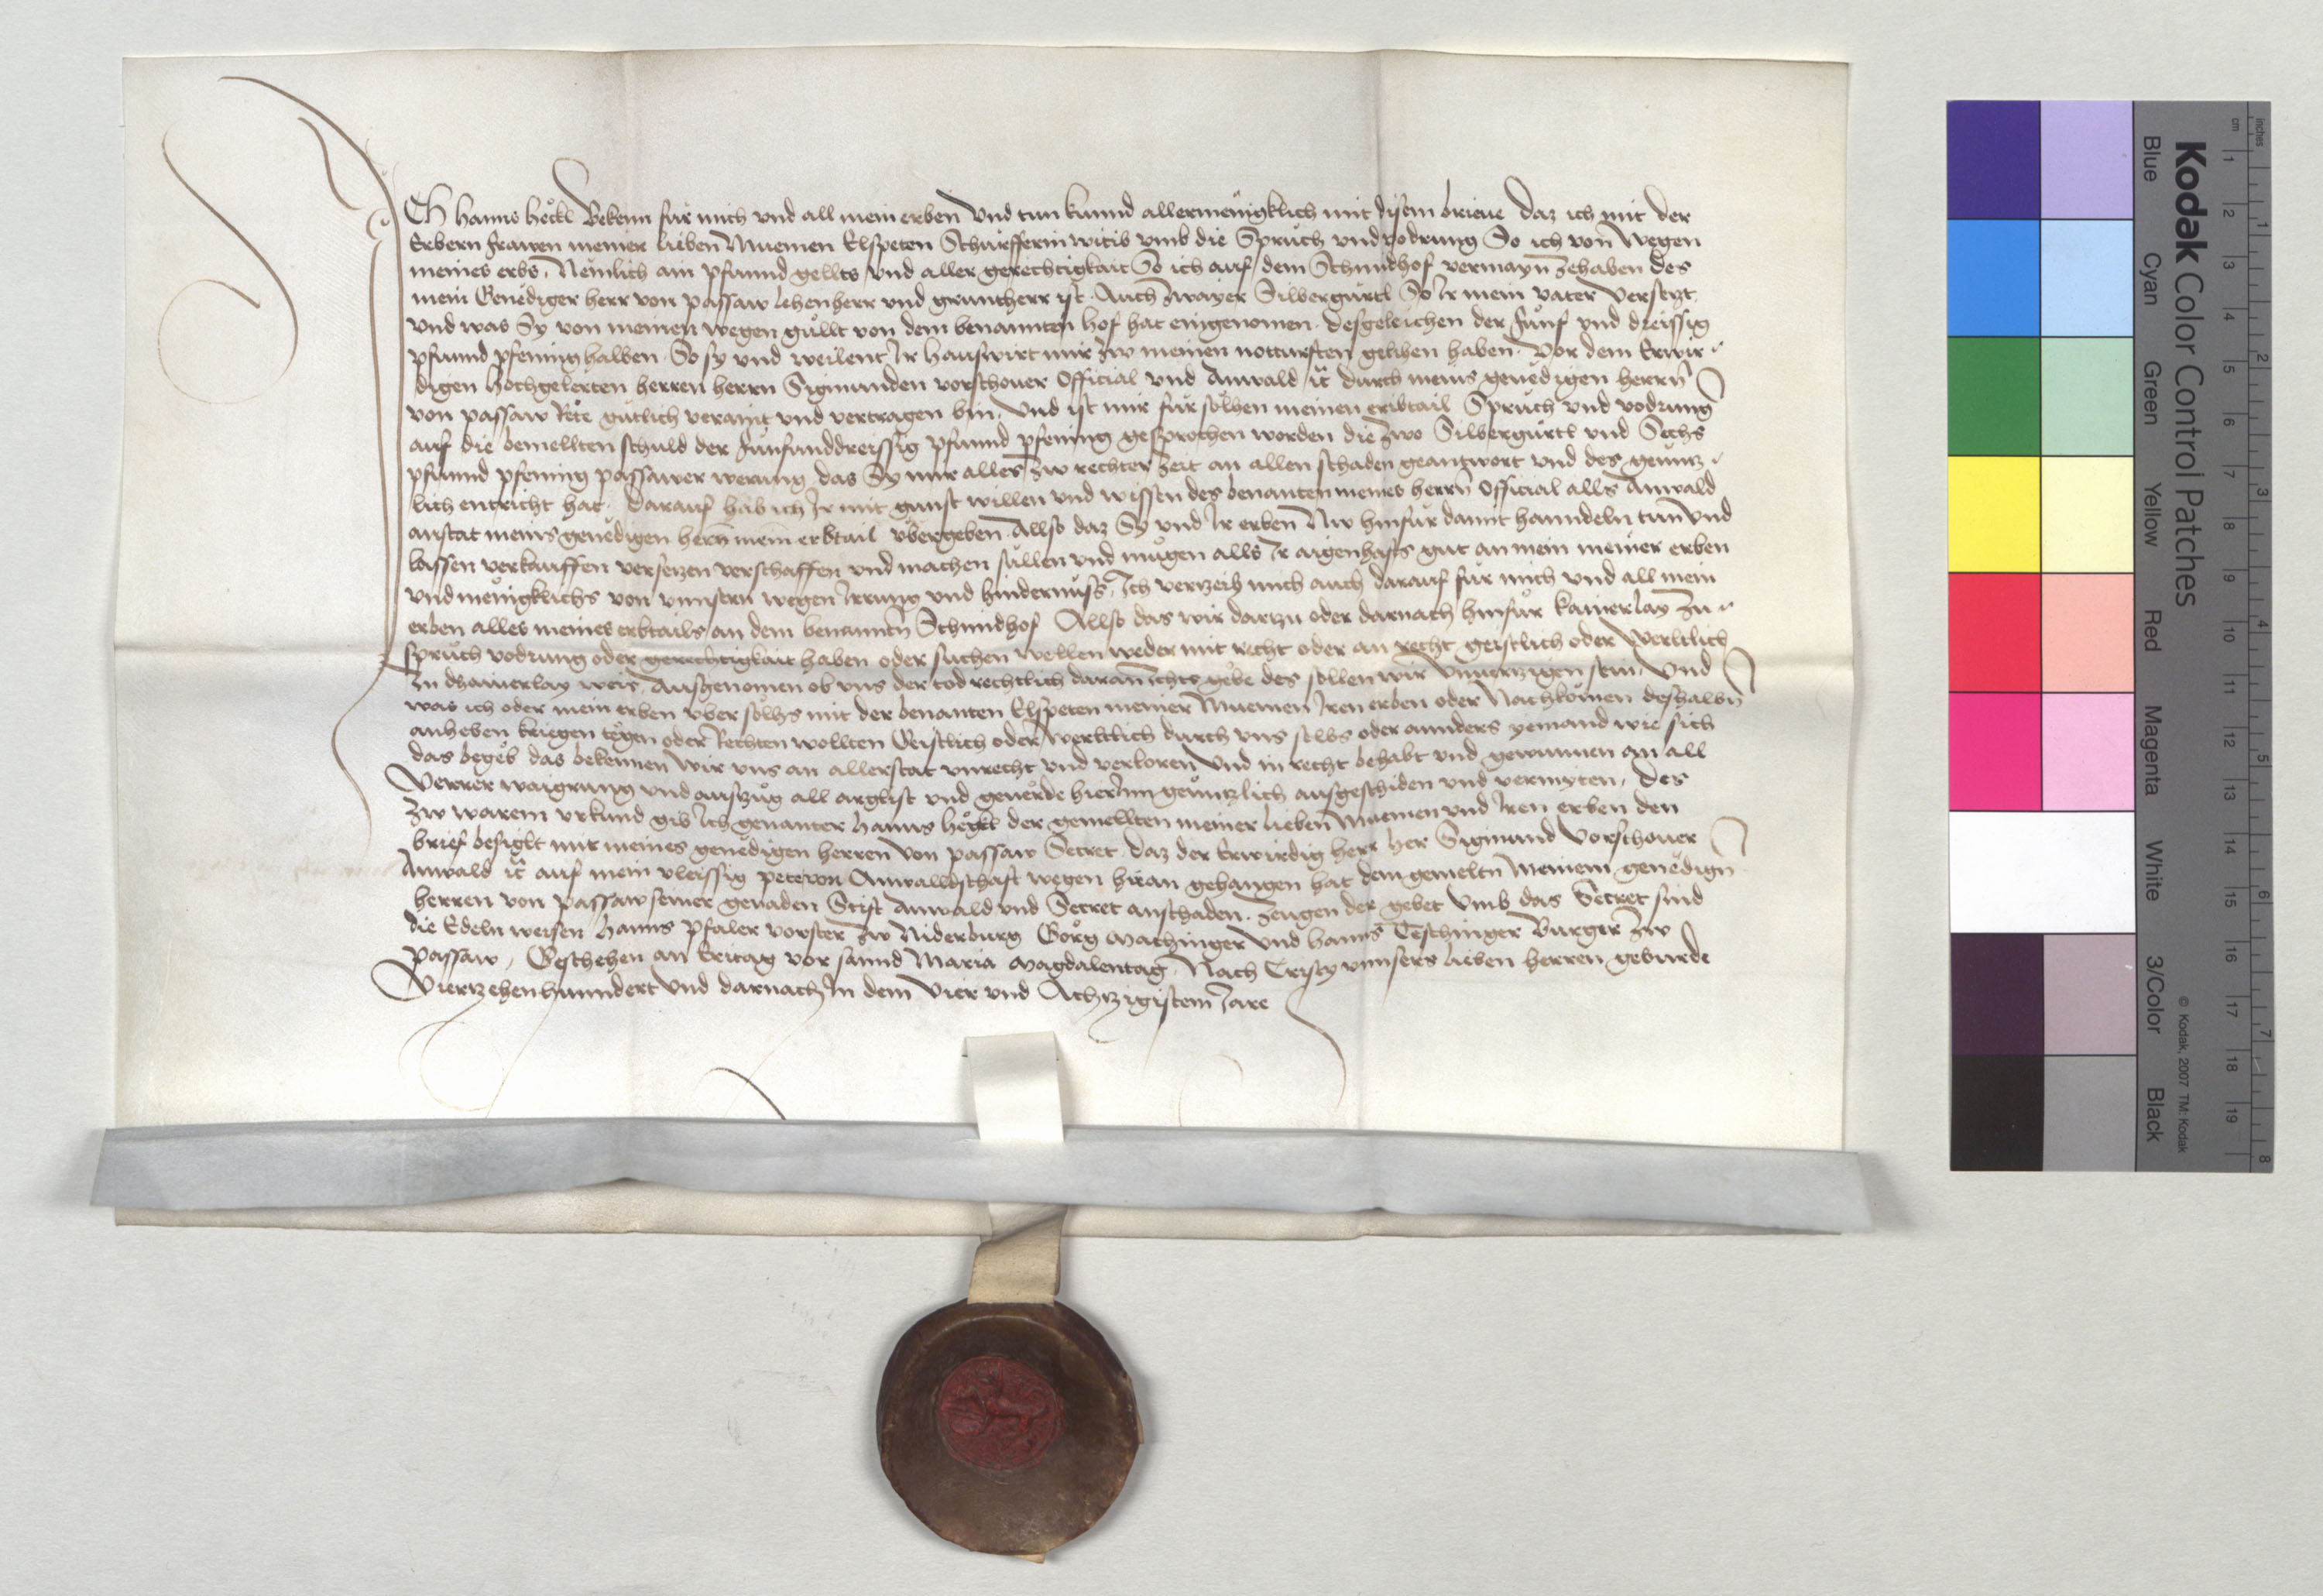 ICh hanns hekl Bekenn fur mich vnd all mein erben vnd tun kunnd allermenigklich mit disem brieue Daz ich mit der
Erbern frawen meiner lieben Muemen Elspeten Schürfferin witib vmb die Spruch vnd vodrung So ich von wegen
meines erbs, Nemlich ain pfunnd gellts vnd aller gerechtigkait So ich auf dem Schmidhof vermayn zehaben des
mein Genediger herr von passaw lehenherr vnd gruntherr ist. Auch zwayer Silbergürtl So Ir mein vater versetzt
vnd was Sy von meinen wegen güllt von dem benannten hof hat eingenomen. desgeleichen der fünf vnd dreissig
pfunnd pfening halben. So sy vnd weilent Ir hauswirt mir zw meinen notturften gelihen haben. Vor dem Erwir-
digen hochgelerten herren herrn Sigmunden vorschouer Official vnd Anwald ꝛc durch meins genedigen herrn
von passaw Rete gütlich veraint vnd vertragen bin, vnd ist mir für solhen meinen erbtail Spruch vnd vodrung
auf die bemellten schuld der fünfunddreissig pfunnd pfening gesprochen worden die zwo Silbergürtl vnd Sechs
pfunnd pfening passawer werung das Sy mir alles zw rechter zeit an allen schaden geantwort vnd des gentz-
lich entricht hat. Darauf hab ich Ir mit gunst willen vnd wissen des benanten meines herrn Official alls Anwald
anstat meins genedigen hern mein erbtail vbergeben. Allso daz Sy vnd Ir erben Nw hinfür damit hanndeln tun vnd
lassen verkauffen versetzen verschaffen vnd machen sullen vnd mügen alls Ir aigenhafts gut an mein meiner erben
vnd menigklichs von vnnsern wegen Irrung vnd hindernuss. Ich verzeih mich auch darauf für mich vnd all mein
erben alles meines erbtails an dem benannten Schmidhof Allso das wir dartzu oder darnach hinfür kainerlay zu-
spruch vodrung oder gerechtigkait haben oder suchen wellen weder mit recht oder an recht geistlich oder Werltlich
In dhainerlay weis. Ausgenomen ob vns der tod rechtlich daran ichts gebe des sollen wir vnuertzigen sein, Vnd
was ich oder mein erben vber solhs mit der benanten Elspeten meiner Muemen Iren erben oder Nachkomen deshalbn
anheben kriegen tegen oder Rechten wollten Geistlich oder Werltlich durch vns selbs oder annders yemand wie sich
das begeb das bekennen wir vns an allerstat vnrecht vnd verloren Vnd in recht behabt vnd gewunnen an all
Verrer waigrung vnd auszug all arglist vnd geuerde hierInn genntzlich ausgeschiden vnd vermyten, Des
zw warem vrkund gib Ich genanter hanns hekl der gemellten meiner lieben Muemen vnd Iren erben den
brief besiglt mit meines genedigen herren von passaw Secret daz der Erwirdig herr her Sigmund Vorschouer
Anwald ꝛc auf mein vleissig pete von Anwalldschaft wegen hiran gehangen hat dem gemeltn meinem genedign
herren von passaw seiner genaden Stift Anwald vnd Secret anschaden. Zeugen der gebet vmb das Secret sind
die Edeln weisen hanns pfaler vorster zw Niderburg Gorg Matzinger vnd hanns Teschinger Burger zw
passaw, Geschehen an Eritag vor sannd Maria Magdalentag. Nach Cristy vnnsers lieben herren geburde
Viertzehenhunndert vnd darnach In dem Vier vnd Achtzigistem Jare
Kodak Color Control Patches
Blue Cyan Green Yellow Red Magenta White 3/Color Black
© Kodak, 2007 TM: Kodak
cm 1 2 3 4 5 6 7 8 9 10 11 12 13 14 15 16 17 18 19
inches 1 2 3 4 5 6 7 8